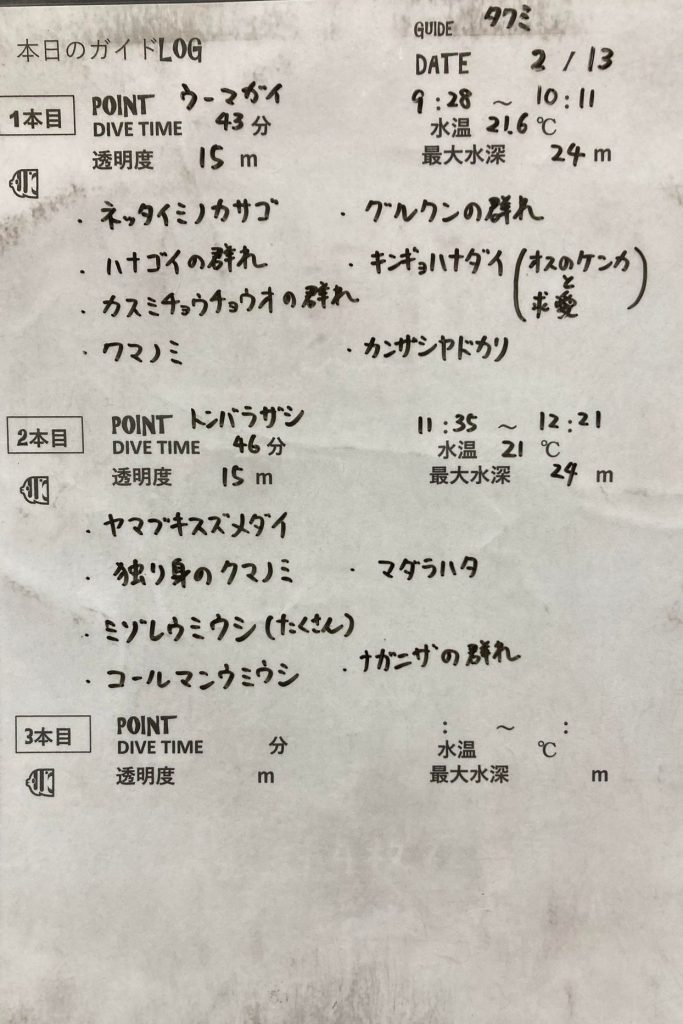 GUIDE タクミ
本日のガイドLOG
DATE 2 / 13
1本目 POINT ウーマガイ 9:28 ～ 10:11
DIVE TIME 43 分 水温 21.6 ℃
透明度 15 m 最大水深 24 m
・ネッタイミノカサゴ ・グルクンの群れ
・ハナゴイの群れ ・キンギョハナダイ(オスのケンカと求愛)
・カスミチョウチョウオの群れ
・クマノミ ・カンザシヤドカリ
2本目 POINT トンバラザシ 11:35 ～ 12:21
DIVE TIME 46 分 水温 21 ℃
透明度 15 m 最大水深 24 m
・ヤマブキスズメダイ
・独り身のクマノミ ・マダラハタ
・ミゾレウミウシ(たくさん)
・コールマンウミウシ ・ナガニザの群れ
3本目 POINT : ～ :
DIVE TIME 分 水温 ℃
透明度 m 最大水深 m